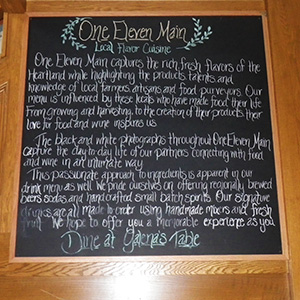 One Eleven Main
Local Flavor Cuisine
One Eleven Main captures the rich, fresh flavors of the
Heartland while highlighting the products talents and
knowledge of local farmers artisans and food purveyors. Our
menu is influenced by these locals who have made food their life
From growing and harvesting, to the creation of their products their
love for food and wine inspires us.
The black and white photographs throughout One Eleven Main
capture the day to day life of our partners connecting with food
and wine in an intimate way.
This passionate approach to ingredients is apparent in our
drink menu as well. We pride ourselves on offering regionally brewed
beers sodas and handcrafted small batch spirits. Our signature
drinks are all made to order using handmade mixers and fresh
fruit. We hope to offer you a memorable experience as you
Dine at Galena's Table